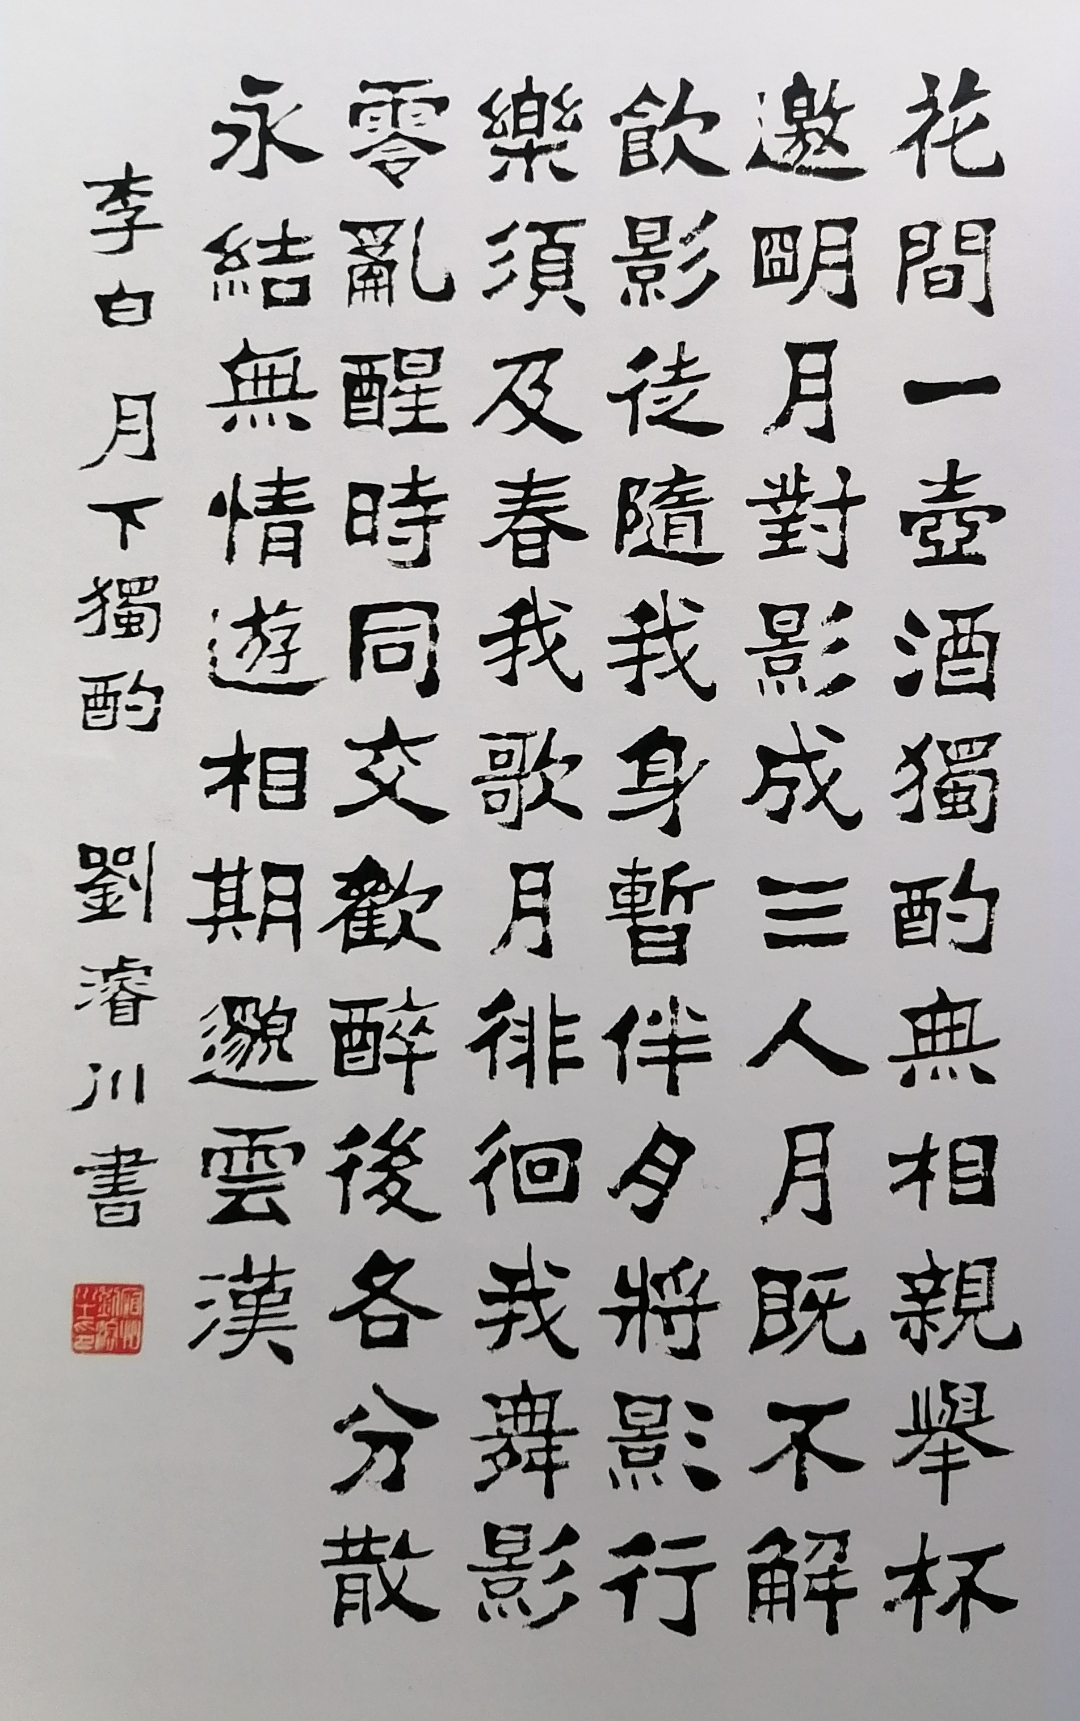 花間一壺酒獨酌無相親舉杯
邀明月對影成三人月既不解
飲影徒隨我身暫伴月將影行
樂須及春我歌月徘徊我舞影
零亂醒時同交歡醉後各分散
永結無情遊相期邈雲漢
李白 月下獨酌 劉濬川書